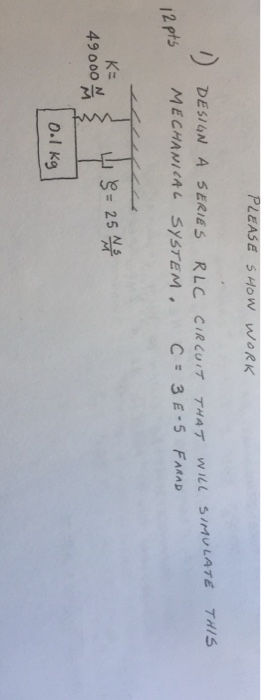 PLEASE SHOW WORK
1) DESIGN A SERIES RLC CIRCUIT THAT WILL SIMULATE THIS
12 pts MECHANICAL SYSTEM. C = 3 E-5 FARAD
K=
49000 N/M
ξ = 25 NS/M
0.1 kg